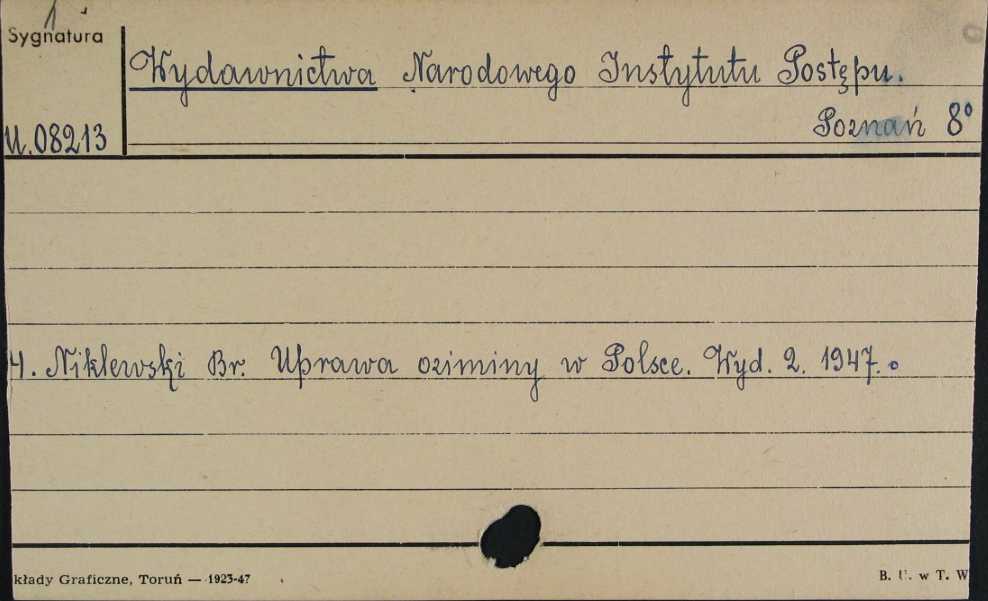 1
Sygnatura
Wydawnictwa Narodowego Instytutu Postępu.
Poznań 8°
U.08213
4. Niklewski Br. Uprawa oziminy w Polsce. Wyd. 2. 1947.
kłady Graficzne, Toruń — 1923-47
B. U. w T. W